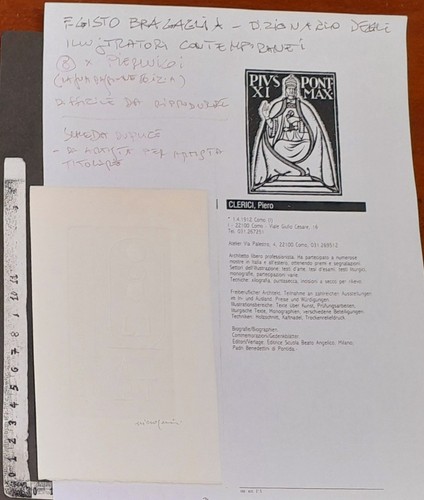 EGISTO BRAGAGLIA - DIZIONARIO DEGLI
ILLUSTRATORI CONTEMPORANEI
DIFFICILE DA RIPRODURRE
SCHEDA DUPLICE
- X ARTISTA PER ARTISTA
TITOLARE
PIVS PONT
XI MAX
CLERICI, Piero
* 1.4.1910 Como (I)
I - 22100 Como - Viale Giulio Cesare 16
Tel. 031.267251
Atelier Via Palestro, 4, 22100 Como, 031.269512
Architetto libero professionista. Ha partecipato a numerose
mostre in Italia e all'estero, ottenendo premi e segnalazioni.
Settori dell'illustrazione: testi d'arte, tesi d'esami, testi liturgici,
monografie, partecipazioni varie.
Tecniche: silografia, puntasecca, incisioni a secco per rilievo.
Freiberuflicher Architekt. Teilnahme an zahlreichen Ausstellungen
im In- und Ausland. Preise und Würdigungen.
Illustrationsbereiche: Texte über Kunst, Prüfungsarbeiten,
liturgische Texte, Monographien, verschiedene Beteiligungen.
Techniken: Holzschnitt, Kaltnadel, Trockenreliefdruck.
Biografie/Biographien:
Commemorazioni/Gedenkblätter:
Editori/Verlage: Editrice Scuola Beato Angelico, Milano;
Padri Benedettini di Pontida.
0 1 2 3 4 5 6 7 8 9 10 11